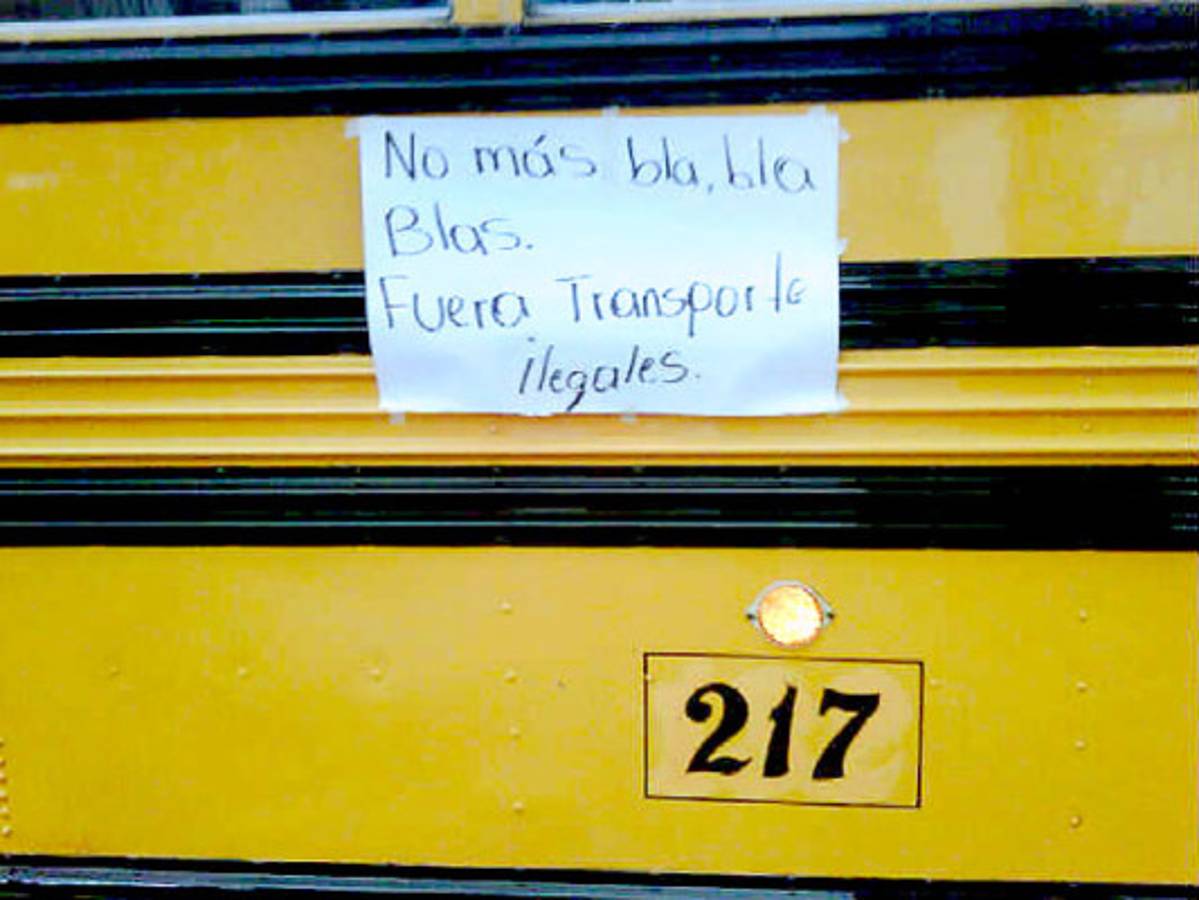 No más bla, bla
Blas.
Fuera Transporte
ilegales.
217